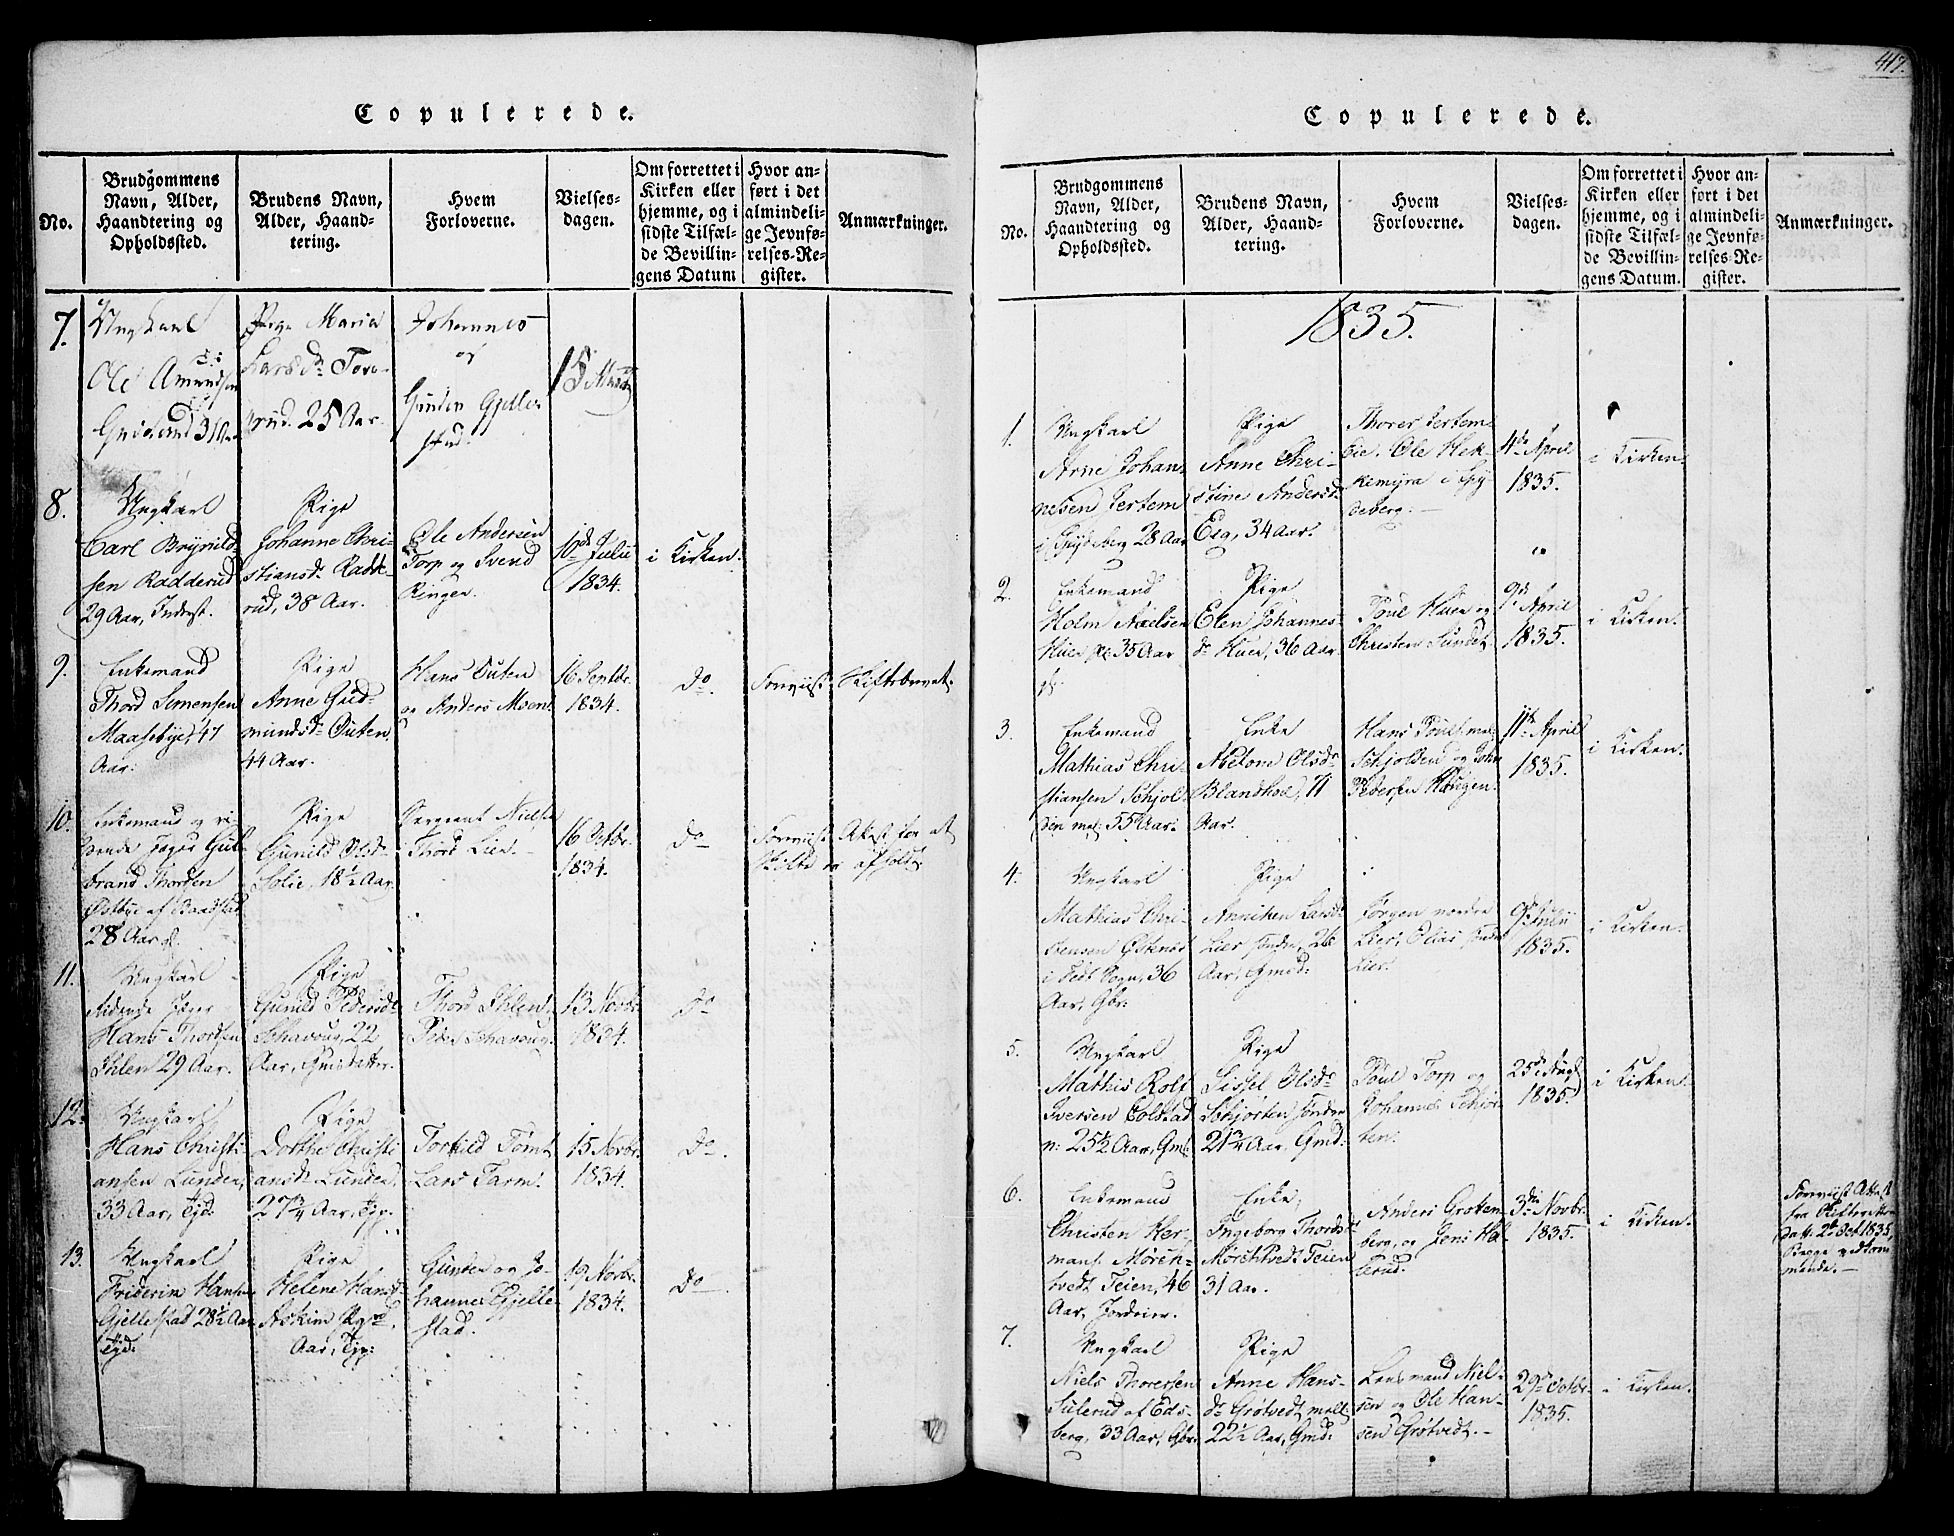 Copulerede.
No.
Brudgommens
Navn, Alder,
Haandtering og
Opholdssted.
Brudens Navn,
Alder, Haand-
tering.
Hvem
Forloverne.
Vielses-
dagen.
Om forrettet i
Kirken eller
hjemme, og i
sidste Tilfæl-
de Bevillin-
gens Datum
Hvor an-
ført i det
almindeli-
ge Jevnfø-
relses-Re-
gister.
Anmærkninger.
7.
Ungkarl
Ole Amundsen
31 Aar
Pige Maria
Larsdr Tove-
rud. 25 Aar.
Johannes
og
Gunder Gjelle-
stad.
15
8.
Ungkarl
Carl Brynild-
sen Radderud
29 Aar, Inderst.
Pige
Johanne Chri-
stiansdr Radde-
rud, 38 Aar.
Ole Andersen
Torp og Svend
Ringen.
10de Julii
1834.
i Kirken.
9.
Enkemand
Thord Simensen
Maasebye, 47
Aar.
Pige
Anne Gud-
mundsdr Outen,
44 Aar.
Hans Outen
og Anders Moen.
16 Septbr.
1834.
Do.
Forviist Skiftebrevet.
10.
Enkemand og ri-
dende Jæger Gul-
brand Thordsen
Østbye af Baadstad
28 Aar gl.
Pige
Gunild Olsdr
Solie, 18½ Aar.
Sergeant Nielsen
Thord Lien.
16 Octbr.
1834.
Do
Forviist Attest for at
Skifte er afholdt.
11.
Ungkarl
Ridende Jæger
Hans Thordsen
Ihlen 29 Aar.
Pige
Gunild Pedersdr
Schavoug, 22
Aar, Gmdatter.
Thord Ihlen,
Peder Schavoug.
13 Novbr.
1834.
Do
12.
Ungkarl
Hans Christi-
ansen Lunden,
33 Aar, Tjd:
Pige
Dorthe Christi-
ansdr Lunden,
27¾ Aar, Tjp.
Torkild Tomt
Lars Tarm.
15 Novbr.
1834.
Do.
13.
Ungkarl
Friderin Hansen
Gjellestad 28½ Aar
Tjd:
Pige
Helene Hansd
Askim
Aar, Tjp:
Gunder og Jo-
hannes Gjelle-
stad.
19 Novbr.
1834.
Do
417.
Copulerede.
No.
Brudgommens
Navn, Alder,
Haandtering og
Opholdssted.
Brudens Navn,
Alder, Haand-
tering.
Hvem
Forloverne.
Vielses-
dagen.
Om forrettet i
Kirken eller
hjemme, og i
sidste Tilfæl-
de Bevillin-
gens Datum.
Hvor an-
ført i det
almindeli-
ge Jevnfø-
relses-Re-
gister.
Anmærkninger.
1835.
1.
Ungkarl
Arne Johan-
nesen Jertem
i Spydeberg 28 Aar
Pige
Anne Chri-
stine Andersdr
Esg, 34 Aar.
Thorer Jertem-
Eie. Ole Hek-
kemyra i Spy-
deberg.
4de April
1835.
Kirken.
2.
Enkemand
Holm Axelsen
Huer 35 Aar
gl.
Pige
Elen Johannes-
dr Huer, 36 Aar
Poul Huer og
Christen Sundet
9de April
1835.
i Kirken.
3.
Enkemand
Mathias Chri-
stiansen Schjol-
den mel: 55 Aar.
Enke
Abelone Olsdr
Blandhol, 71
Aar.
Hans Poulsen
Schjolden og John
Pedersen Haugen.
11te April
1835.
i Kirken.
4.
Ungkarl
Mathias Chri-
stensen Østenes
i Hedt Sogn, 36
Aar, Gbr:
Pige
Anniken Larsdr
Lier søndre, 26
Aar, Gmd:
Jørgen nordre
Lier, Elias søndre
Lier.
9de Julii
1835.
i Kirken.
5.
Ungkarl
Mathis Rolf
Iversen Colstad
n: 25½ Aar, Gmd:
Pige
Sissel Olsdr
Schjørten søndre
21¾ Aar, Gmd:
Poul Torp og
Johannes Schjør-
ten.
25de Aug
1835.
i Kirken.
6.
Enkemand
Christen Her-
mans. Mørch-
tvedt Teien, 46
Aar, Jordeier.
Enke,
Ingeborg Thordsdr
Mørchtvedt Teien
31 Aar.
Anders Groten-
berg, og Jens Ha-
lerud.
3die Novbr.
1835.
i Kirken.
Forviist Attest
fra Skifteretten
Dat. 2 Oct 1835,
vedkom-
mende.
7.
Ungkarl
Niels Thoresen
Sulerud af Eds-
berg, 33 Aar, Gbr.
Pige
Anne Hans-
dr Grøtvedt mell:
22½ Aar, Gmd:
Lensmand Niel-
sen og Ole Han-
sen Grøtvedt.
29de Octbr.
1835.
i Kirken.